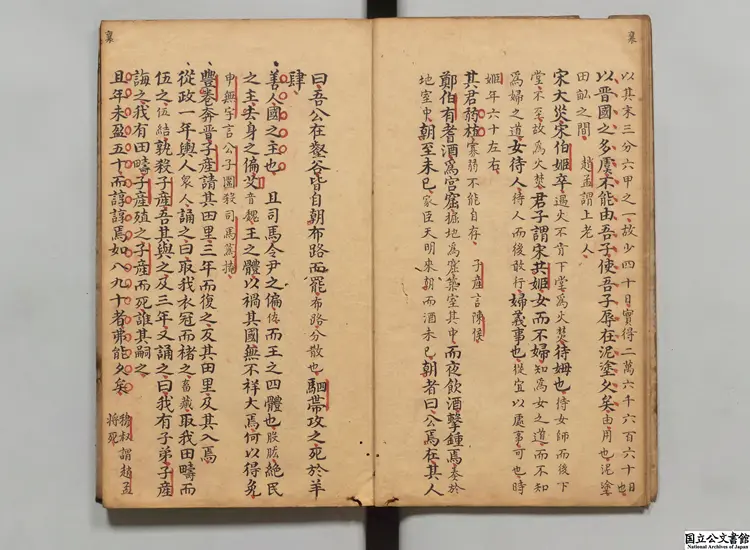 襄
以其末三分六甲之一故少四十日實得二萬六千六百六十日也
以晉國之多虞不能由吾子使吾子辱在泥塗久矣由用也泥塗
田畝之間 趙孟謂上老人
宋大災宋伯姬卒遇火不肯下堂爲火焚待姆也待女師而後下
堂不至故爲火焚君子謂宋共姬女而不婦知爲女之道而不知
爲婦之道女待人待人而後敢行婦義事也從宜以處事可也時
姬年六十左右
其君弱植寡弱不能自存 子產言陳侯
鄭伯有耆酒爲窟掘地爲窟築室其中而夜飲酒擊鍾焉奏於
地室中朝至未已家臣天明來朝而酒未已朝者曰公焉在其人
曰吾公在壑谷皆自朝布路而罷布路分散也駟帶攻之死於羊
肆
善人國之主也 且司馬令尹之偏佐而王之四體也股肱絕民
之主去身之偏艾音魏王之體以禍其國無不祥大焉何以得免
申無宇言公子圍殺司馬蒍掩
豐卷奔晉子產請其田里三年而復之反其田里及其入焉
從政一年輿人衆人誦之曰取我衣冠而褚之畜藏取我田疇而
伍之伍結孰殺子產吾其與之及三年又誦之曰我有子弟子產
誨之我有田疇子產殖之子產而死誰其嗣之
且年未盈五十而諄諄焉如八九十者弗能久矣 穆叔謂趙孟
將死
襄
国立公文書館
National Archives of Japan